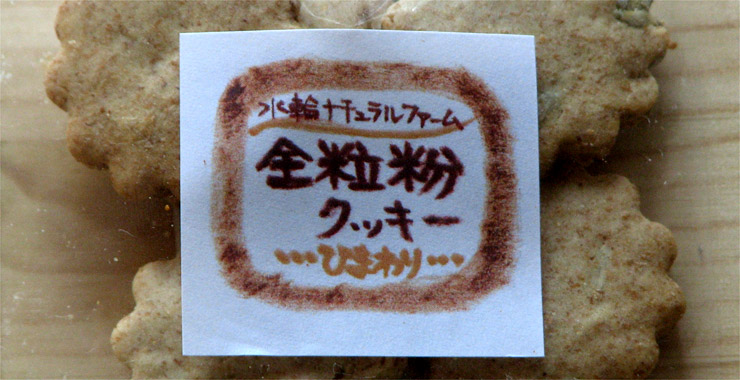 水輪ナチュラルファーム
全粒粉
クッキー
•••ひまわり•••